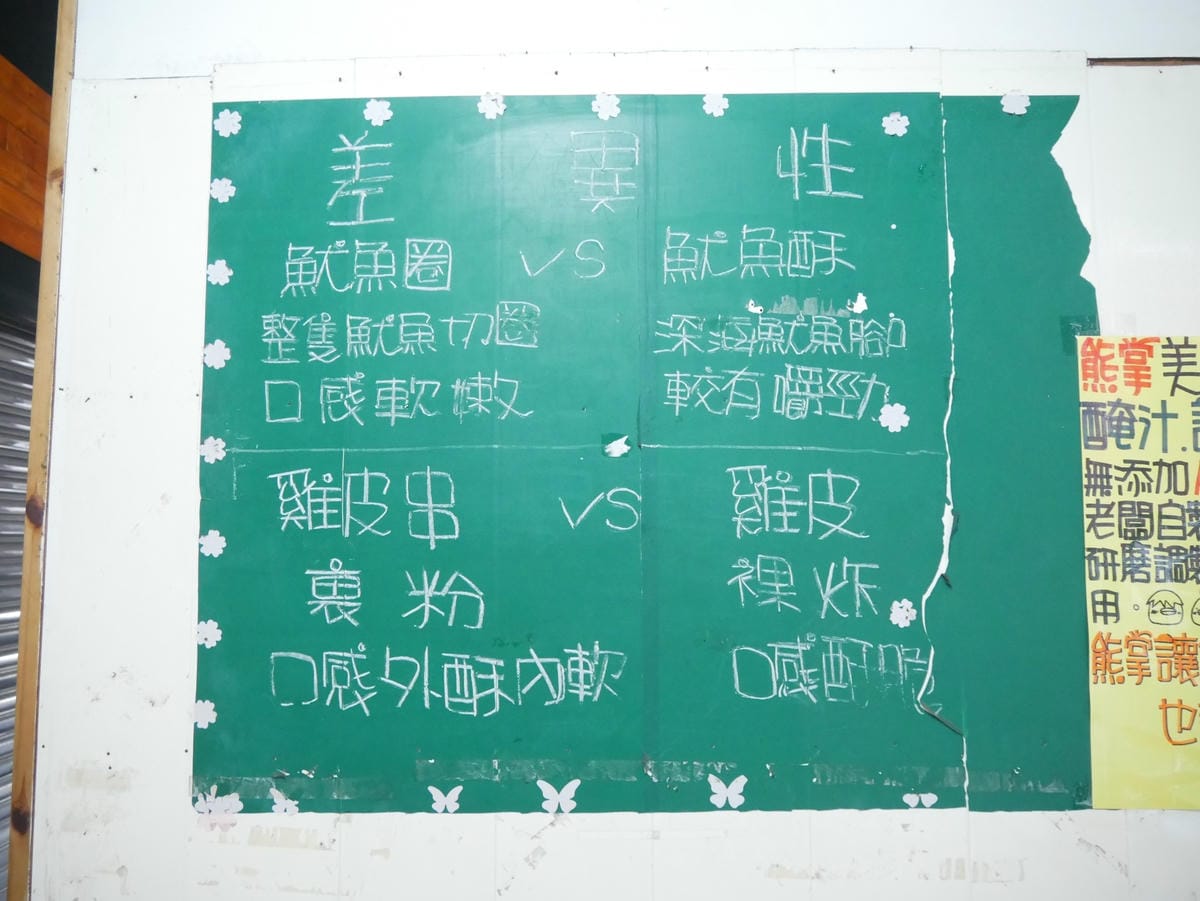 差 異 性
魷魚圈 VS 魷魚酥
整隻魷魚切圈 深海魷魚腳
口感軟嫩 較有嚼勁
雞皮串 VS 雞皮
裹粉 裸炸
口感外酥內軟 口感酥脆
熊掌美
醃汁.
無添加
老闆自製
研磨調
用.
熊掌讓
也